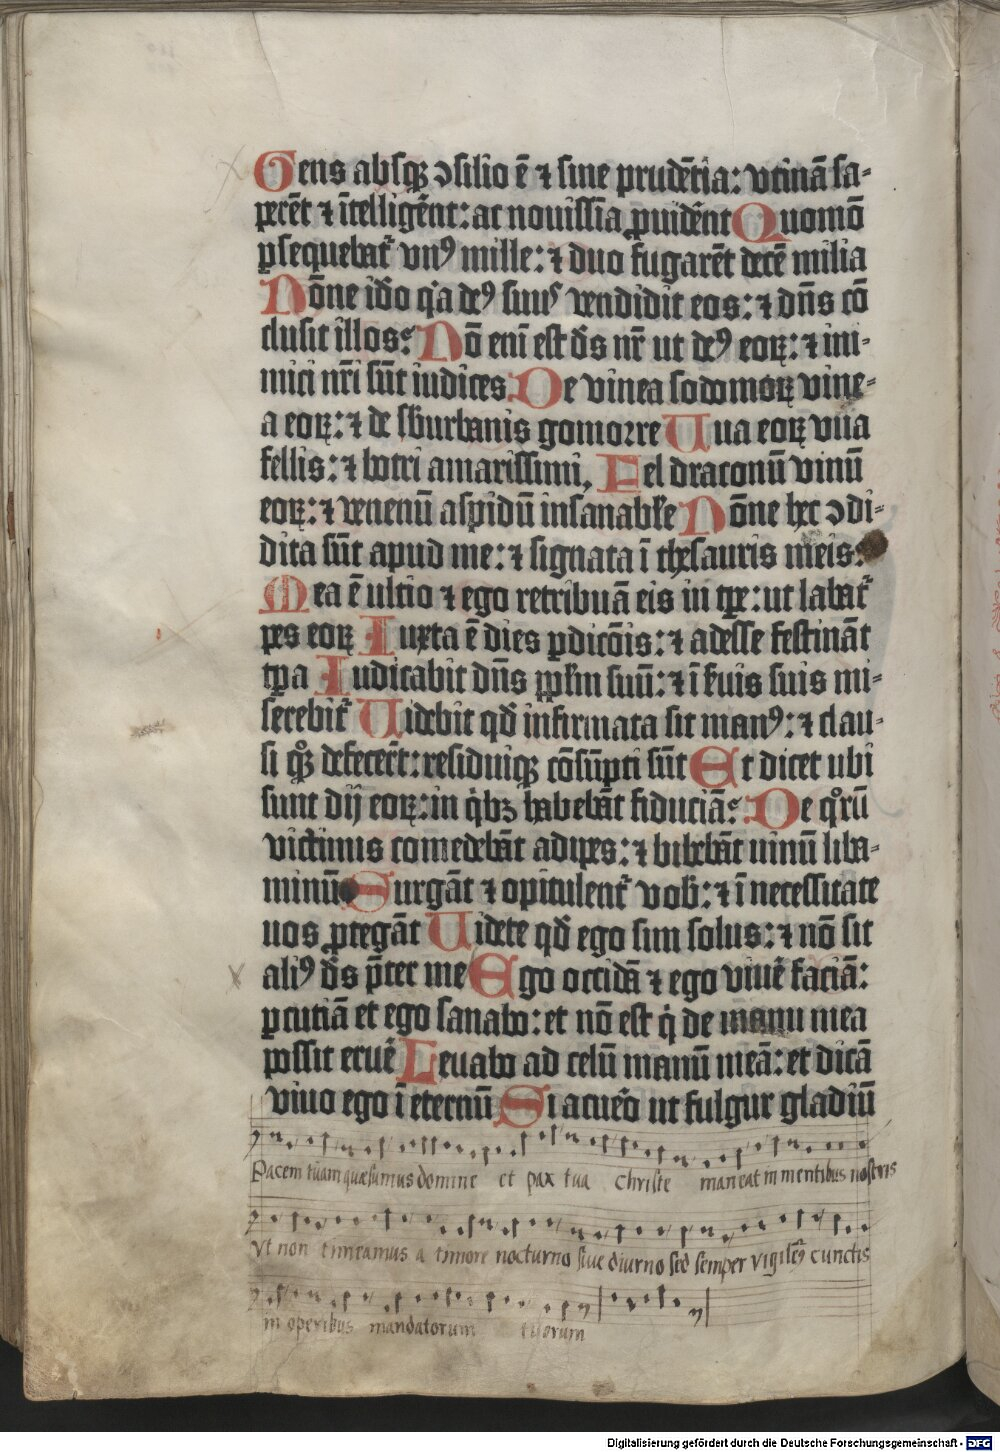 Gens absqꝫ ↄsilio ē ⁊ sine prudētia: vtinā sa-
perēt ⁊ ītelligēnt: ac nouissīa ꝓuidēnt Quomō
ꝑsequebat᷑ vnꝰ mille: ⁊ duo fugarēt decē milia
Nōne iđo qͥa deꝰ suus vendidit eos: ⁊ dn̄s cō
clusit illos: Nō eni est đs nr̄ ut deꝰ eoꝝ: ⁊ ini-
mici nr̄i sūt iudices De vinea sodomoꝝ vine-
a eoꝝ: ⁊ de sburbanis gomorre Uua eoꝝ vua
fellis: ⁊ botri amarissimi, Fel draconū vinū
eoꝝ: ⁊ venenū aspidū insanabꝉe Nōne hec ↄdi-
dita sūt apud me: ⁊ signata ī thesauris meis:
Mea ē ultio ⁊ ego retribuā eis in tꝑe: ut labat᷑
pes eoꝝ Iuxta ē dies ꝑdicōis: ⁊ adesse festināt
tꝑa Iudicabit dn̄s pꝉm suū: ⁊ ī ẜuis suis mi-
serebit᷑ Uidebit qđ infirmata sit manꝰ: ⁊ clau-
si qͦꝫ defecer̄t: residuiqꝫ cōsūpti sūt Et dicet ubi
sunt dij eoꝝ: in qͥbꝫ habebāt fiduciā: De qͦrū
victimis comedebāt adipes: ⁊ bibebāt uinū liba-
minū Surgāt ⁊ opitulent᷑ vob̄: ⁊ ī necessitate
uos ꝓtegāt Uidete qđ ego sim solus: ⁊ nō sit
aliꝰ đs p̄ter me Ego occidā ⁊ ego viuē faciā:
ꝑcutiā et ego sanabo: et nō est qͥ de manu mea
possit eruē Leuabo ad celū manū meā: et dicā
viuo ego ī eternū Si acuēo ut fulgur gladiū
Pacem tuam quæsumus domine et pax tua christe maneat in mentibus nostris
Vt non timeamus a timore nocturno siue diurno sed semper vigilem9 cunctis
in operibus mandatorum tuorum
Digitalisierung gefördert durch die Deutsche Forschungsgemeinschaft - DFG